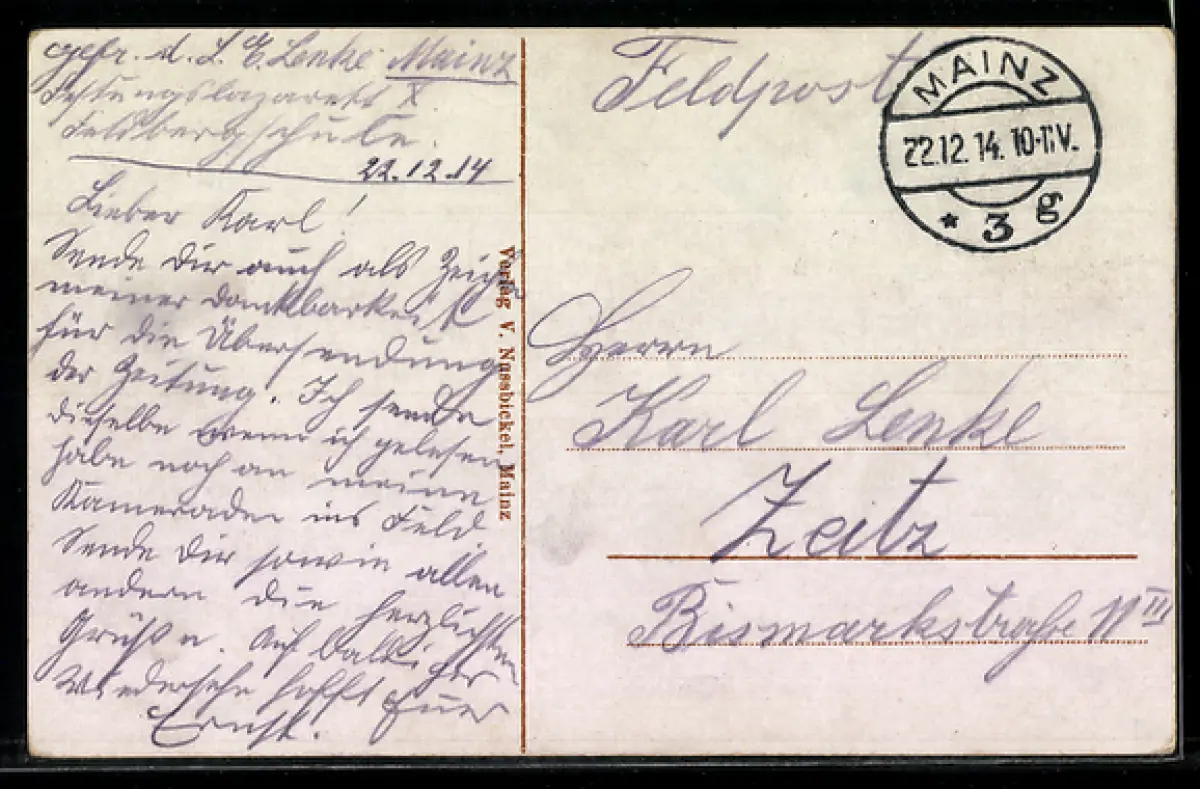 gefr. d. L. E. Lenke Mainz
Festungslazarett X.
Feldbergschule.
22.12.14
Lieber Karl!
Sende Dir auch als Zeichen
meiner Dankbarkeit
für die Übersendung
der Zeitung. Ich sende
dieselbe wenn ich gelesen
habe noch an meine
Kameraden ins Feld.
Sende Dir sowie allen
andern die herzlichsten
Grüße. Auf baldiges
Wiedersehn hofft Euer
Ernst.
Verlag V. Nussbickel, Mainz
Feldpost
MAINZ
22.12.14. 10-11.V.
* 3 g
Herrn
Karl Lenke
Zeitz
Bismarkstraße III